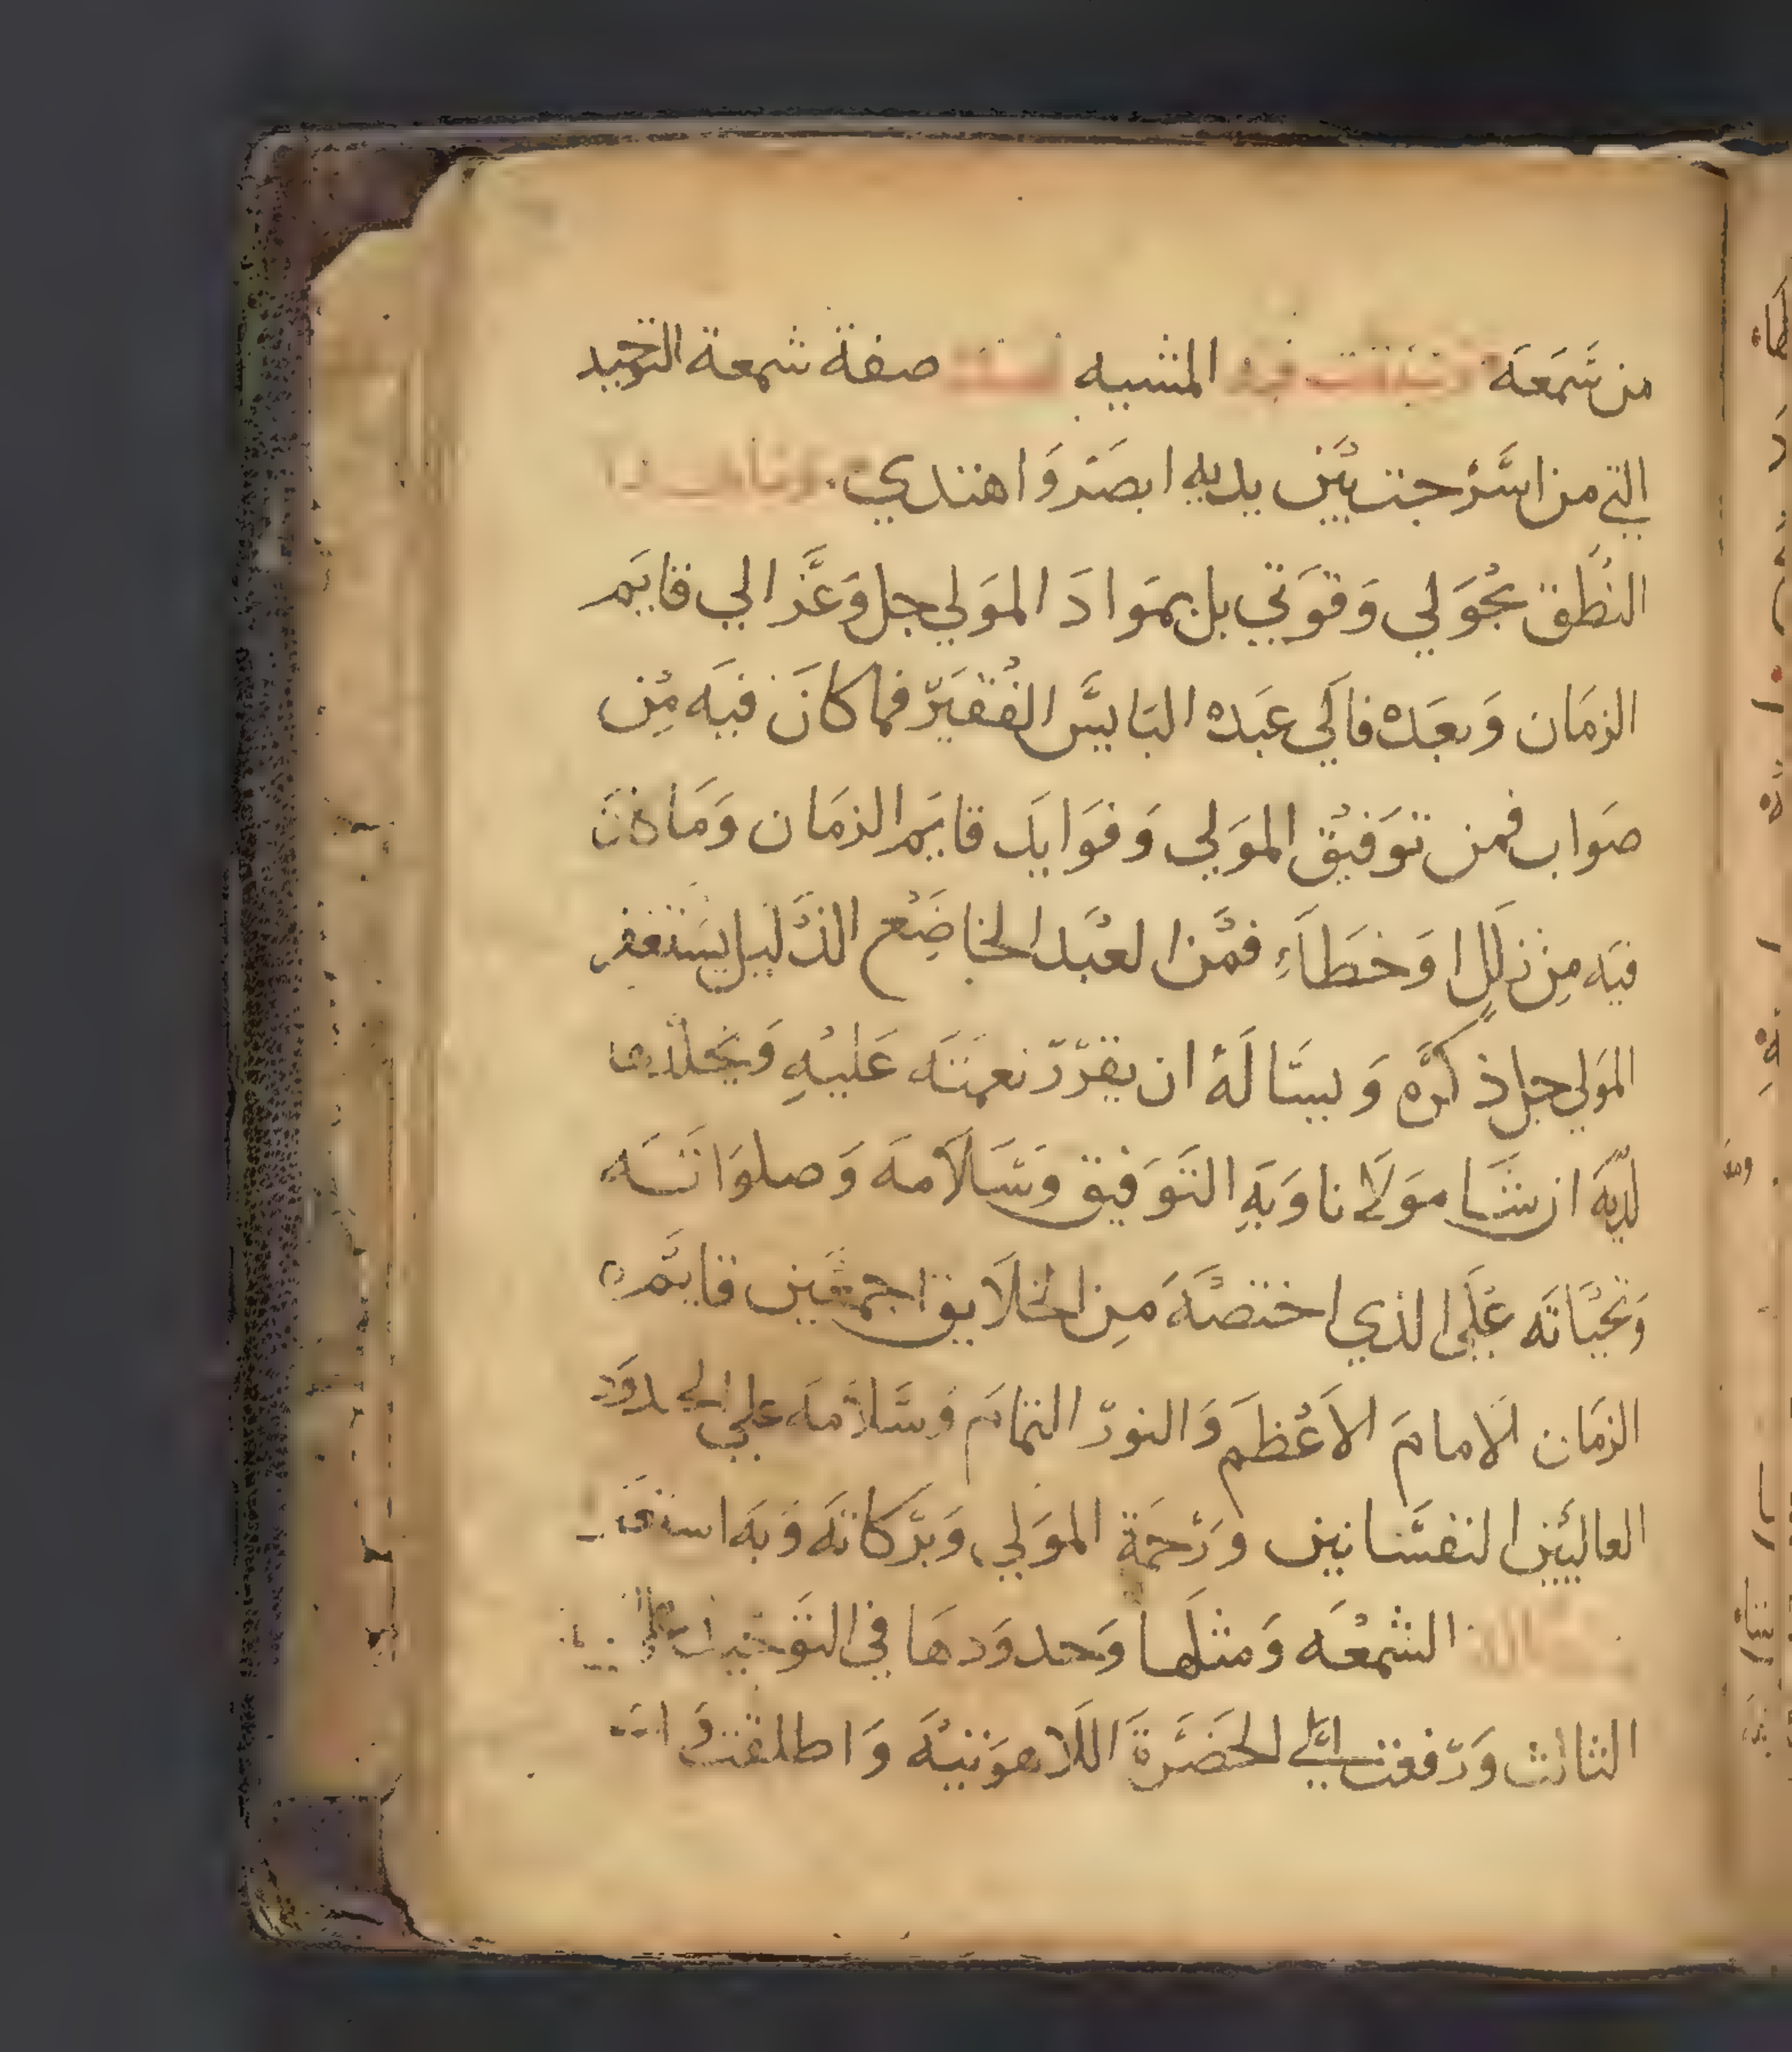 من شمعة المشبيه صفة شمعة التوحيد
التي من اسرجت بين يديه ابصر واهتدي
النطق بحولي وقوتي بل بمواد المولي جل وعز الي قايم
الزمان وبعده فالي عبده البايس الفقير فما كان فيه من
صواب فمن توفيق المولي وفوايد قايم الزمان وما كان
فيه من زلل او خطاء فمن العبد الخاضع الذليل يستغفر
المولي جل ذكره ويساله ان يقرر نعمته عليه
لديه ان شا مولانا وبه التوفيق وسلامه وصلواته
وتحياته علي الذي اختصه من الخلايق اجمعين قايم
الزمان الامام الاعظم والنور التمام وسلامه علي الحدود
العاليين النفسانيين ورحمة المولي وبركاته وبه
الشمعه ومثلها وحدودها في التوحيد
الثالث ورفعت الي الحضرة اللاهوتيه واطلقت